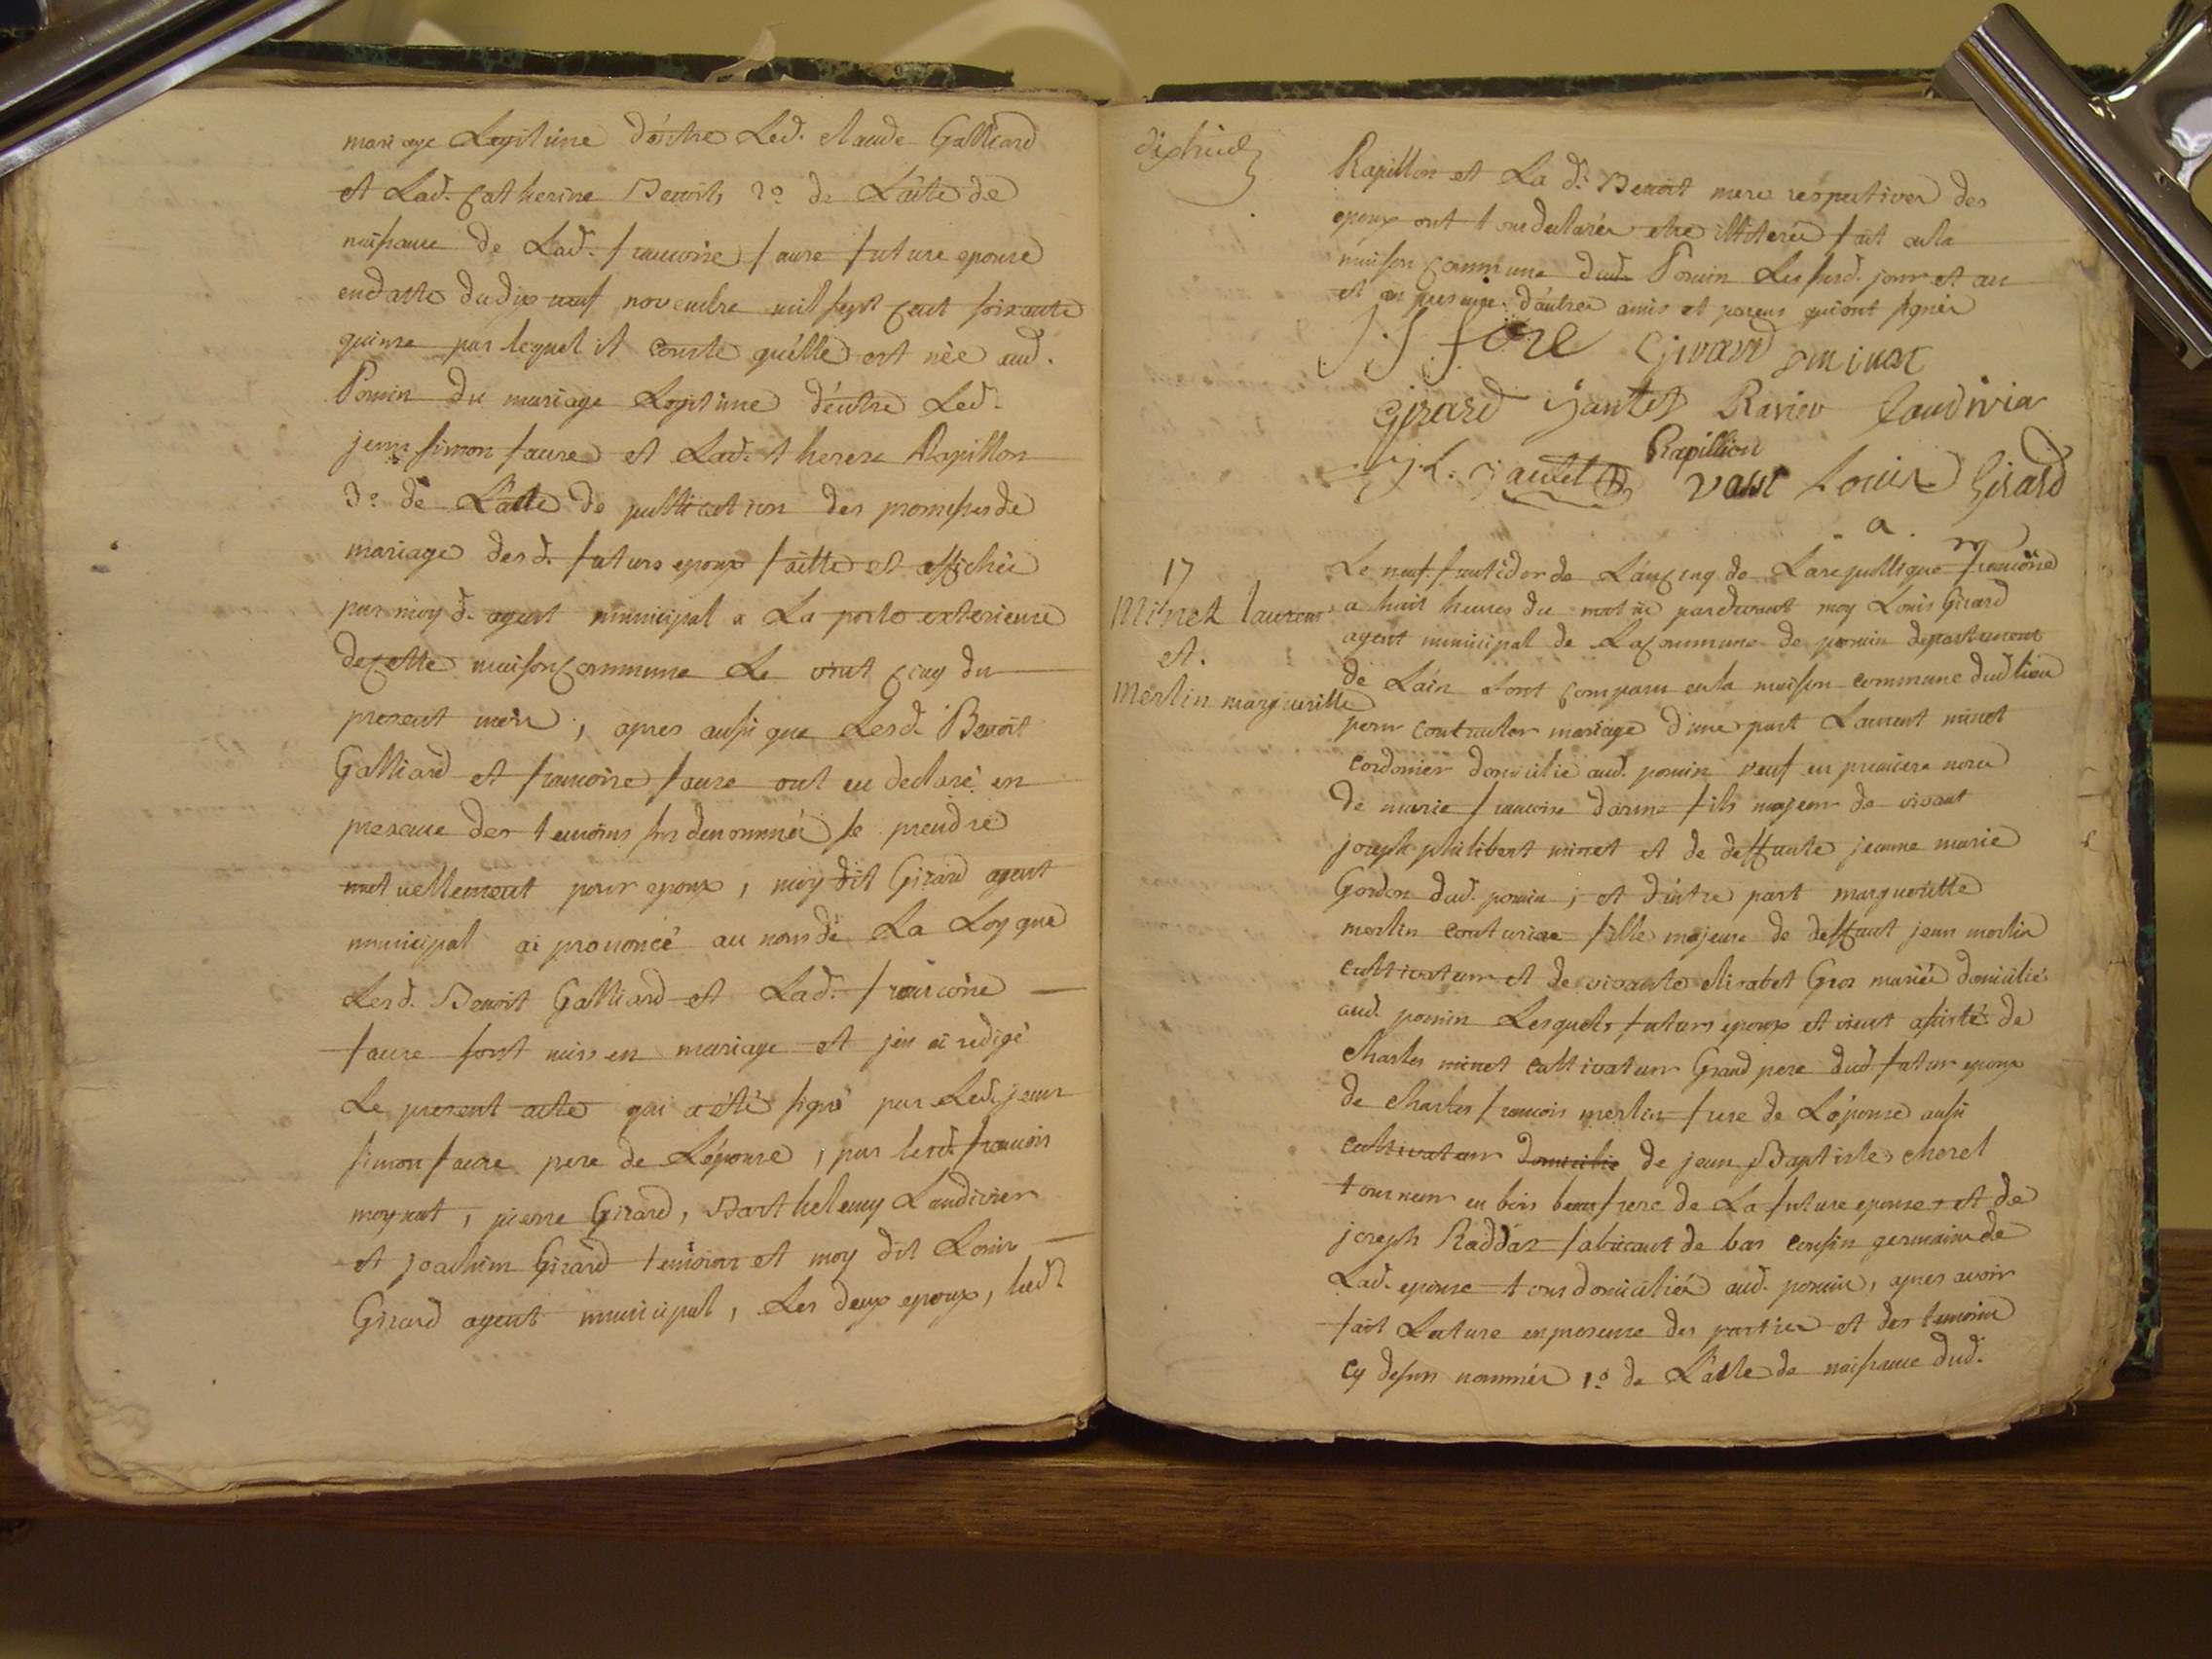 mariage Legitime d'entre Led. claude Galliard
et Lad. catherine Benoit, 2º de L'acte de
naissance de Lad. francoise faure future epouse
en datte du dix neuf novembre mil sept cent soixante
quinse par lequel il conste qu'elle est née aud.
Poncin du mariage Legitime d'entre Led.
jean simon faure et Lad. therese Rapillon
3º de L'acte de publication des promesses de
mariage desd. futurs epoux faitte et affichée
par moy d. agent municipal a La porte exterieure
de cette maison commune Le vint cinq du
present mois, apres aussi que Lesd. Benoit
Galliard et francoise faure ont eu declaré en
presence des temoins sus denommés se prendre
mutuellement pour epoux, moy dit Girard agent
municipal ai prononcé au nom de La Loy que
Lesd. Benoit Galliard et Lad. francoise
faure sont unis en mariage et j'en ai redigé
Le present acte qui a été signé par Led. jean
simon faure pere de L'épouse, par lesd. francois
moynat, pierre Girard, Barthelemy Laudivier
et joachim Girard temoins et moy dit Louis
Girard agent municipal, Les deux epoux, lad.
dixhuit
Rapillon et La d. Benoit mere respectives des
epoux ont tous declarés etre illiterés fait en la
maison commune dud. Poncin Les susd. jour et an
et en presence d'autres amis et parens qui ont signés
J. S. fore Girard moinat
Girard Jantet Ravier Laudivia
Rapillion
J. L. Jantet Louis Girard
a. m
17
Minet laurent
et.
Merlin margueritte
Le neuf fructidor de L'an cinq de La republique francoise
a huit heures du matin pardevant moy Louis Girard
agent municipal de La commune de poncin departement
de Lain sont comparu en la maison commune dud lieu
pour contracter mariage d'une part Laurent minet
cordonier domicilié aud. poncin veuf en premiere noce
de marie francoise darme fils majeur de vivant
joseph philibert minet et de deffunte jeanne marie
Gordon dud. poncin; et d'autre part margueritte
merlin couturiere fille majeure de deffunt jean merlin
cultivateur et de vivante elisabet Gros mariés domicilié
aud. poncin Lesquels futurs epoux etoient assisté de
charles minet cultivateur Grand pere dud. futur epoux
de charles francois merlin frere de L'épouse aussi
cultivateur domicilié de jean Baptiste chorel
tourneur en bois beau frere de La future epouse et de
joseph Raddaz fabricant de bas cousin germain de
Lad. epouse tous domiciliés aud. poncin, apres avoir
fait Lecture en presence des parties et des temoins
cy dessus nommés 1º de L'acte de naissance dud.